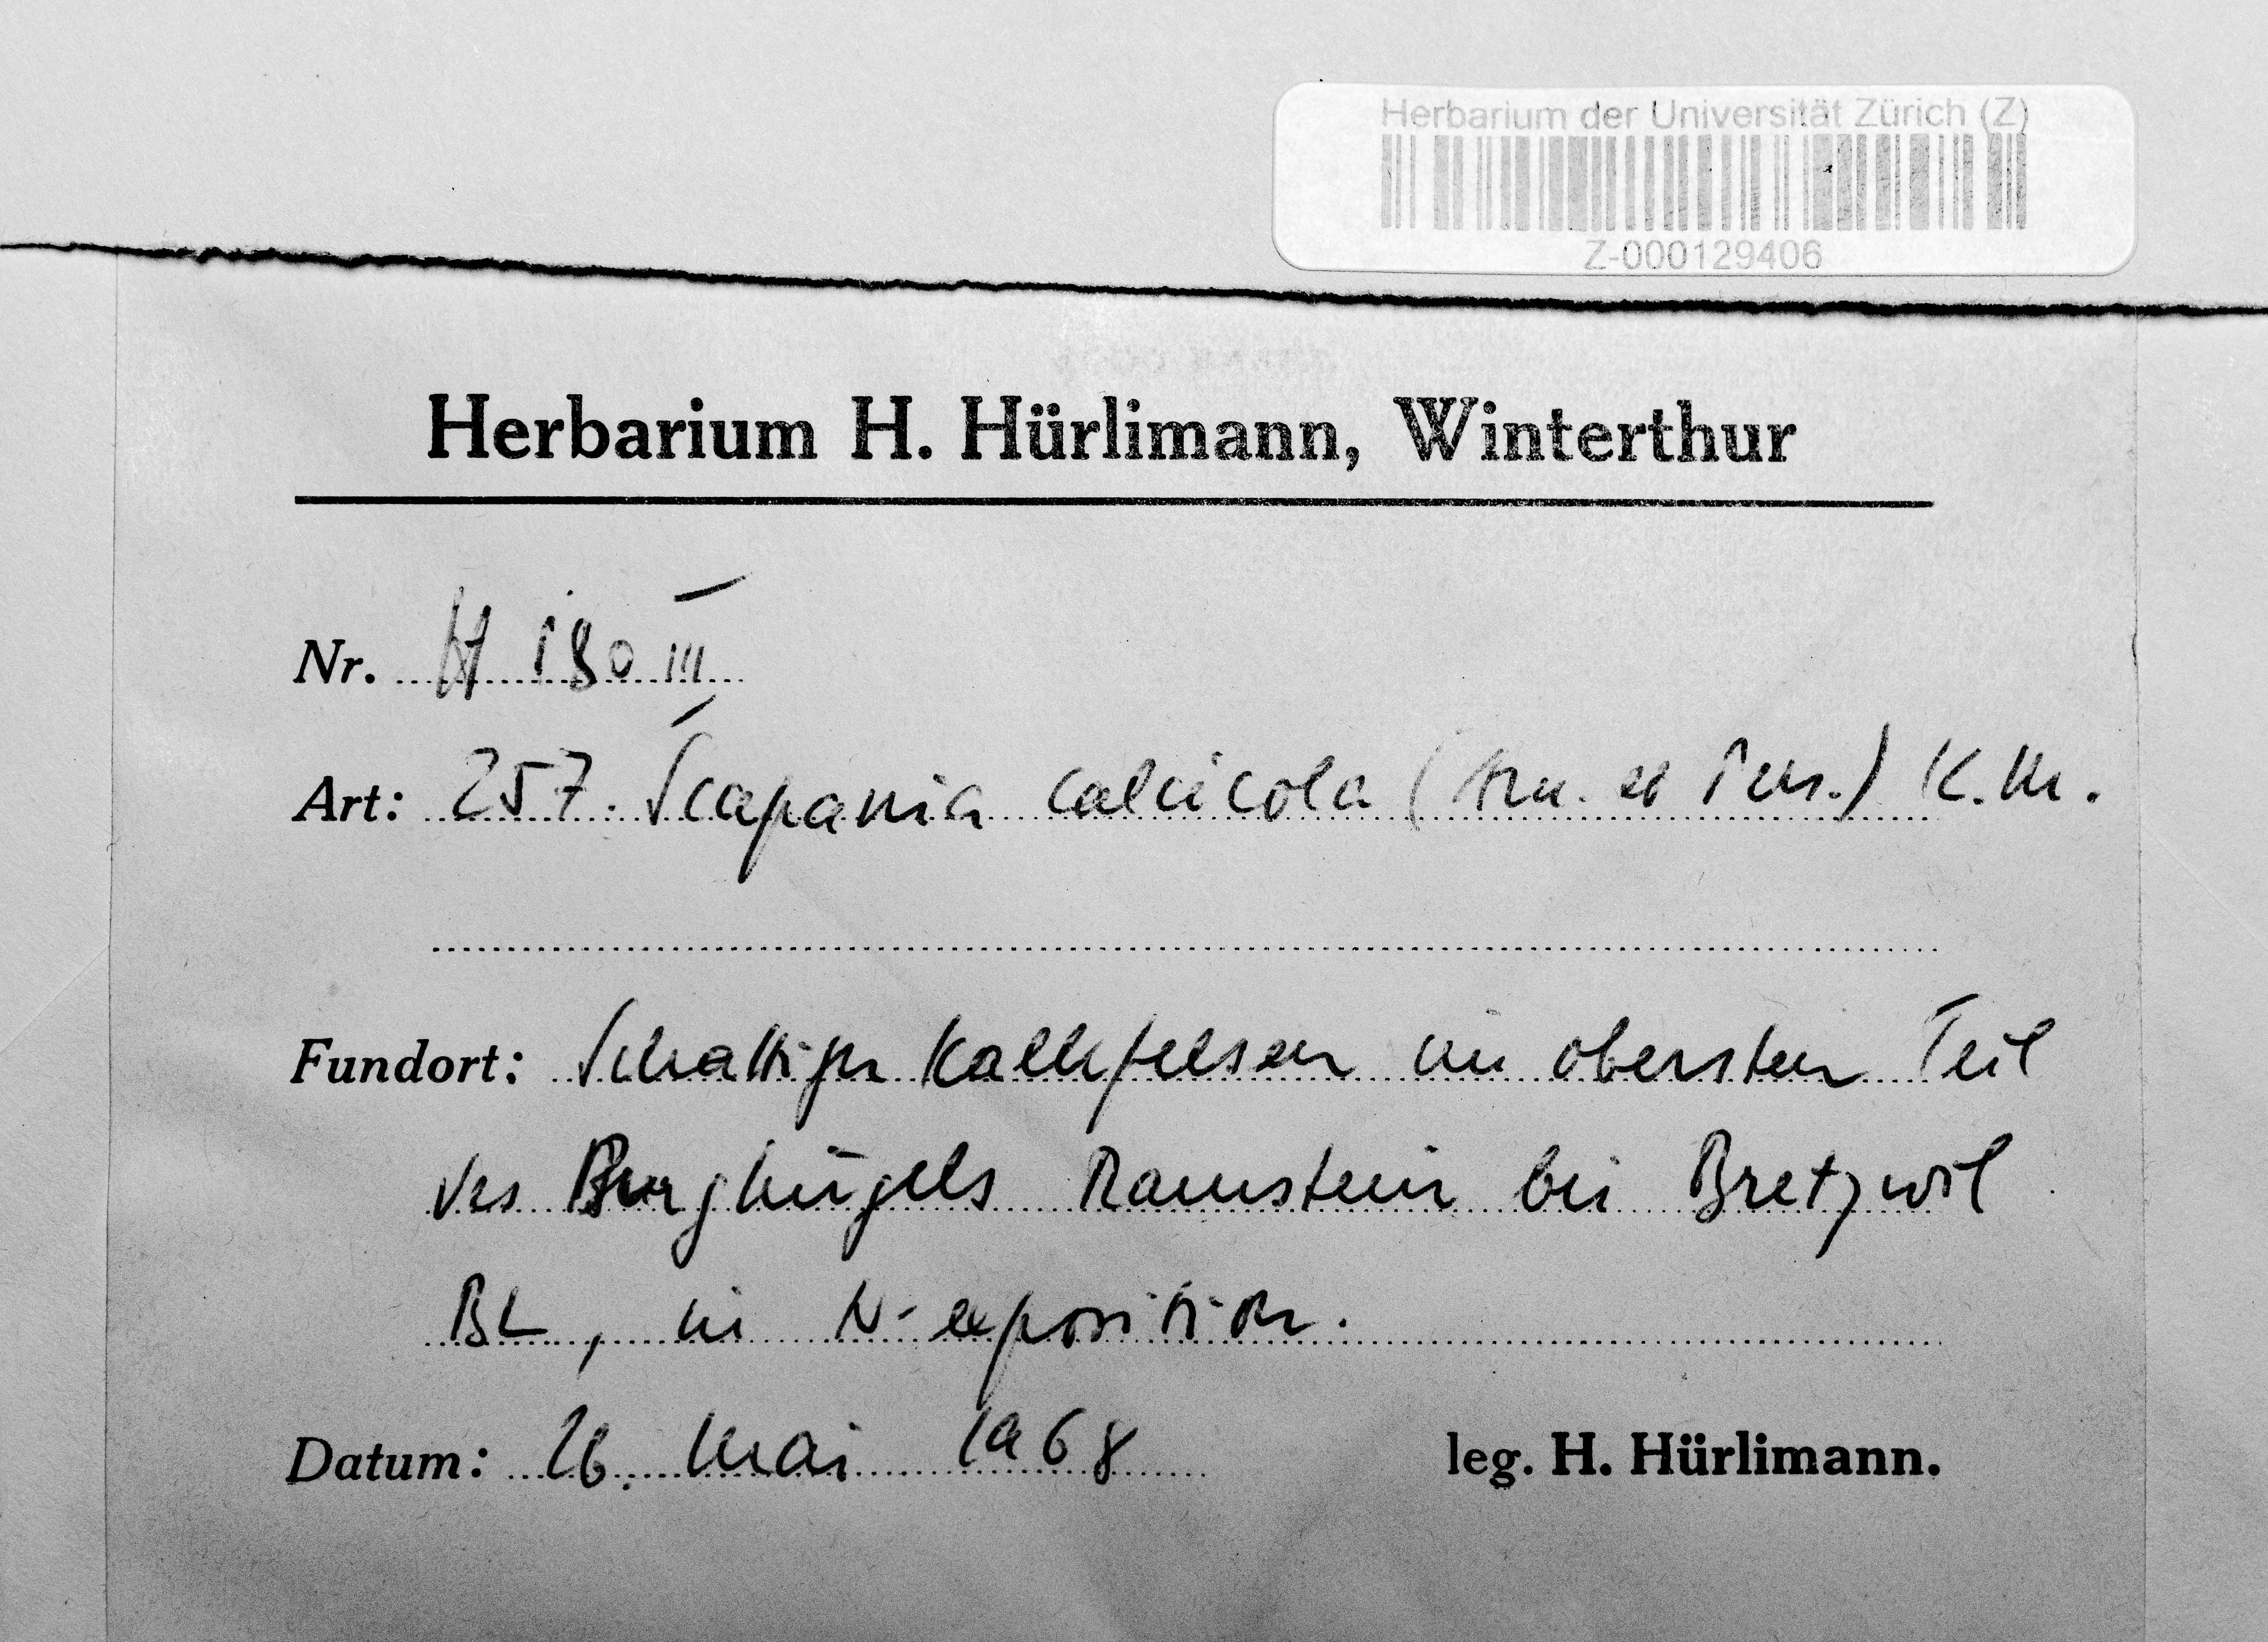 Herbarium der Universität Zürich (Z)
Z-000129406
Herbarium H. Hürlimann, Winterthur
Nr. H 180 III
Art: 257. Scapania calcicola (Arn. et Pers.) K.M.
Fundort: Schattiger Kalkfelsen im obersten Teil
des Burghügels Ramstein bei Bretzwil
BL, in N-exposition.
Datum: 26. Mai 1968 leg. H. Hürlimann.